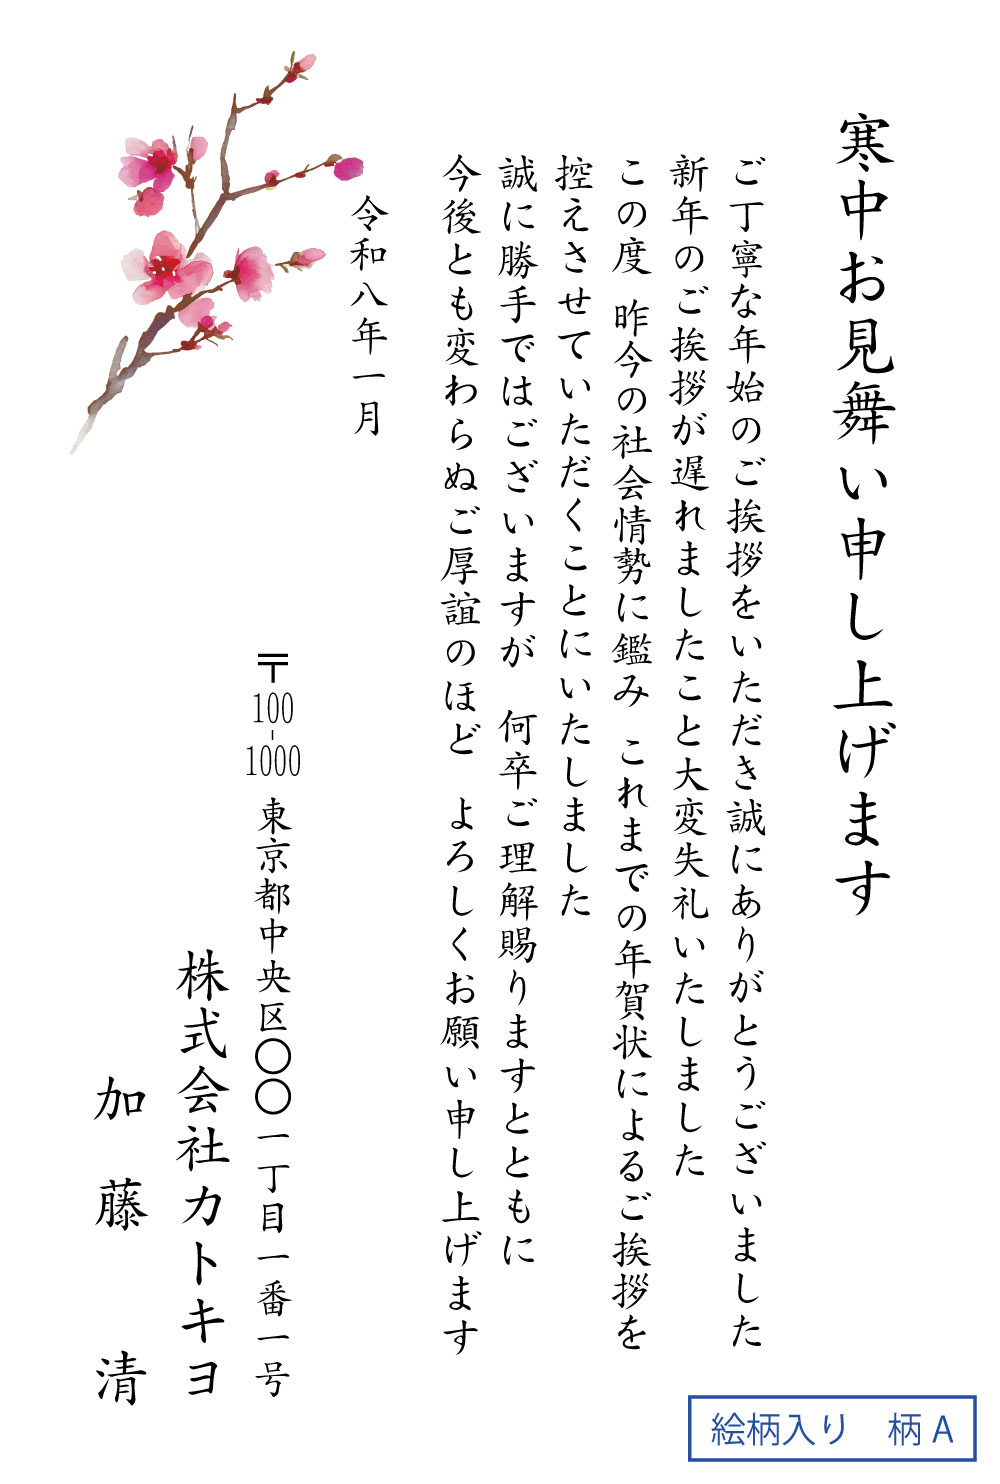 寒中お見舞い申し上げます
ご丁寧な年始のご挨拶をいただき誠にありがとうございました
新年のご挨拶が遅れましたこと大変失礼いたしました
この度 昨今の社会情勢に鑑み これまでの年賀状によるご挨拶を
控えさせていただくことにいたしました
誠に勝手ではございますが 何卒ご理解賜りますとともに
今後とも変わらぬご厚誼のほど よろしくお願い申し上げます
令和八年一月
〒100-1000 東京都中央区〇〇一丁目一番一号
株式会社カトキヨ
加藤 清
絵柄入り 柄A